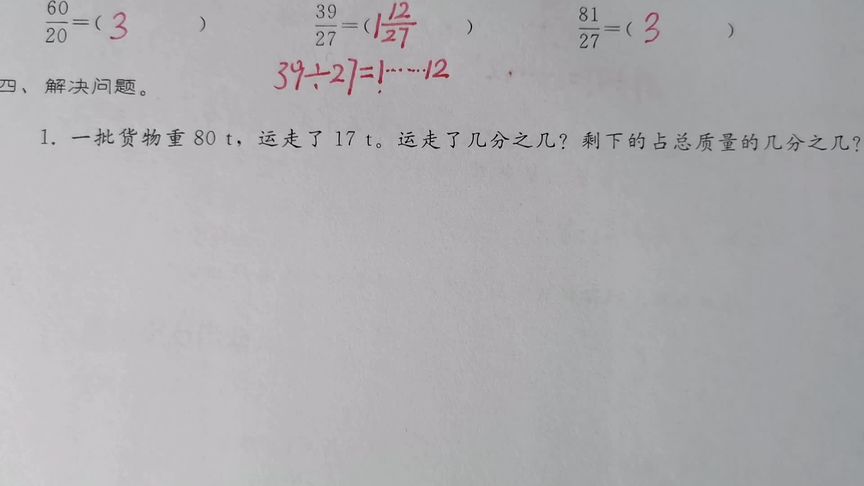 60/20=( 3 ) 39/27=( 1 12/27 ) 81/27=( 3 )
39÷27=1……12
四、解决问题。
1. 一批货物重 80 t，运走了 17 t。运走了几分之几？剩下的占总质量的几分之几？